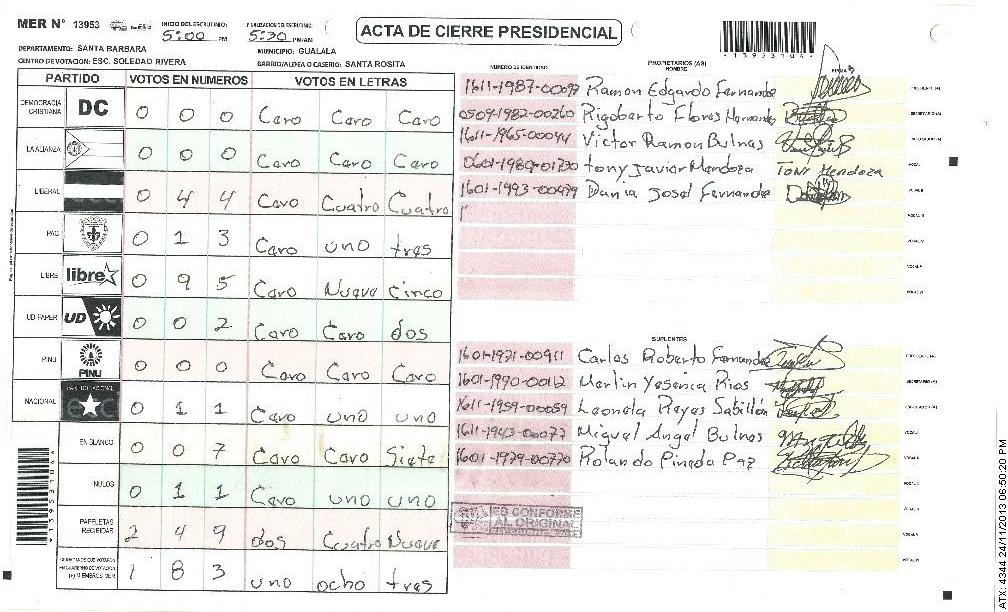 MER N° 13953
INICIO DEL ESCRUTINIO: 5:00 PM
FINALIZACION DEL ESCRUTINIO: 5:30 PM/AM
ACTA DE CIERRE PRESIDENCIAL
DEPARTAMENTO: SANTA BARBARA
MUNICIPIO: GUALALA
CENTRO DE VOTACION: ESC. SOLEDAD RIVERA
BARRIO/ALDEA O CASERIO: SANTA ROSITA
PARTIDO VOTOS EN NUMEROS VOTOS EN LETRAS
DEMOCRACIA CRISTIANA DC 0 0 0 Cero Cero Cero
LA ALIANZA 0 0 0 Cero Cero Cero
LIBERAL 0 4 4 Cero Cuatro Cuatro
PAC 0 1 3 Cero uno tres
LIBRE libre 0 9 5 Cero Nueve Cinco
UD-FAPER UD 0 0 2 Cero Cero dos
PINU PINU 0 0 0 Cero Cero Cero
NACIONAL PARTIDO NACIONAL 0 1 1 Cero uno uno
EN BLANCO 0 0 7 Cero Cero Siete
NULOS 0 1 1 Cero uno uno
PAPELETAS RECIBIDAS 2 4 9 dos Cuatro Nueve
CIUDADANOS QUE VOTARON EN CUADERNO DE VOTACION (+) MIEMBROS MER 1 8 3 uno ocho tres
*13953104*
NUMERO DE IDENTIDAD
PROPIETARIOS (AS)
NOMBRE
FIRMA
1611-1987-00097 Ramon Edgardo Fernandez PRESIDENTE(A)
0509-1982-00260 Rigoberto Flores Hernandez SECRETARIO(A)
1611-1965-00094 Victor Ramon Bulnas
0601-1980-01730 tony Javier Mendoza Tony Mendoza VOCAL I
1601-1993-00979 Dania Josel Fernandez VOCAL II
VOCAL III
VOCAL IV
VOCAL V
VOCAL VI
SUPLENTES
1601-1971-00911 Carlos Roberto Fernandez PRESIDENTE(A)
1601-1990-00112 Merlin Yesenia Rios SECRETARIO(A)
1611-1959-00059 Leonela Reyes Sabillón
1611-1943-00077 Miguel Angel Bulnes VOCAL I
1601-1979-00770 Rolando Pineda Paz VOCAL II
VOCAL III
VOCAL IV
VOCAL V
VOCAL VI
ES CONFORME AL ORIGINAL
ATX: 4344 24/11/2013 06:50:20 PM